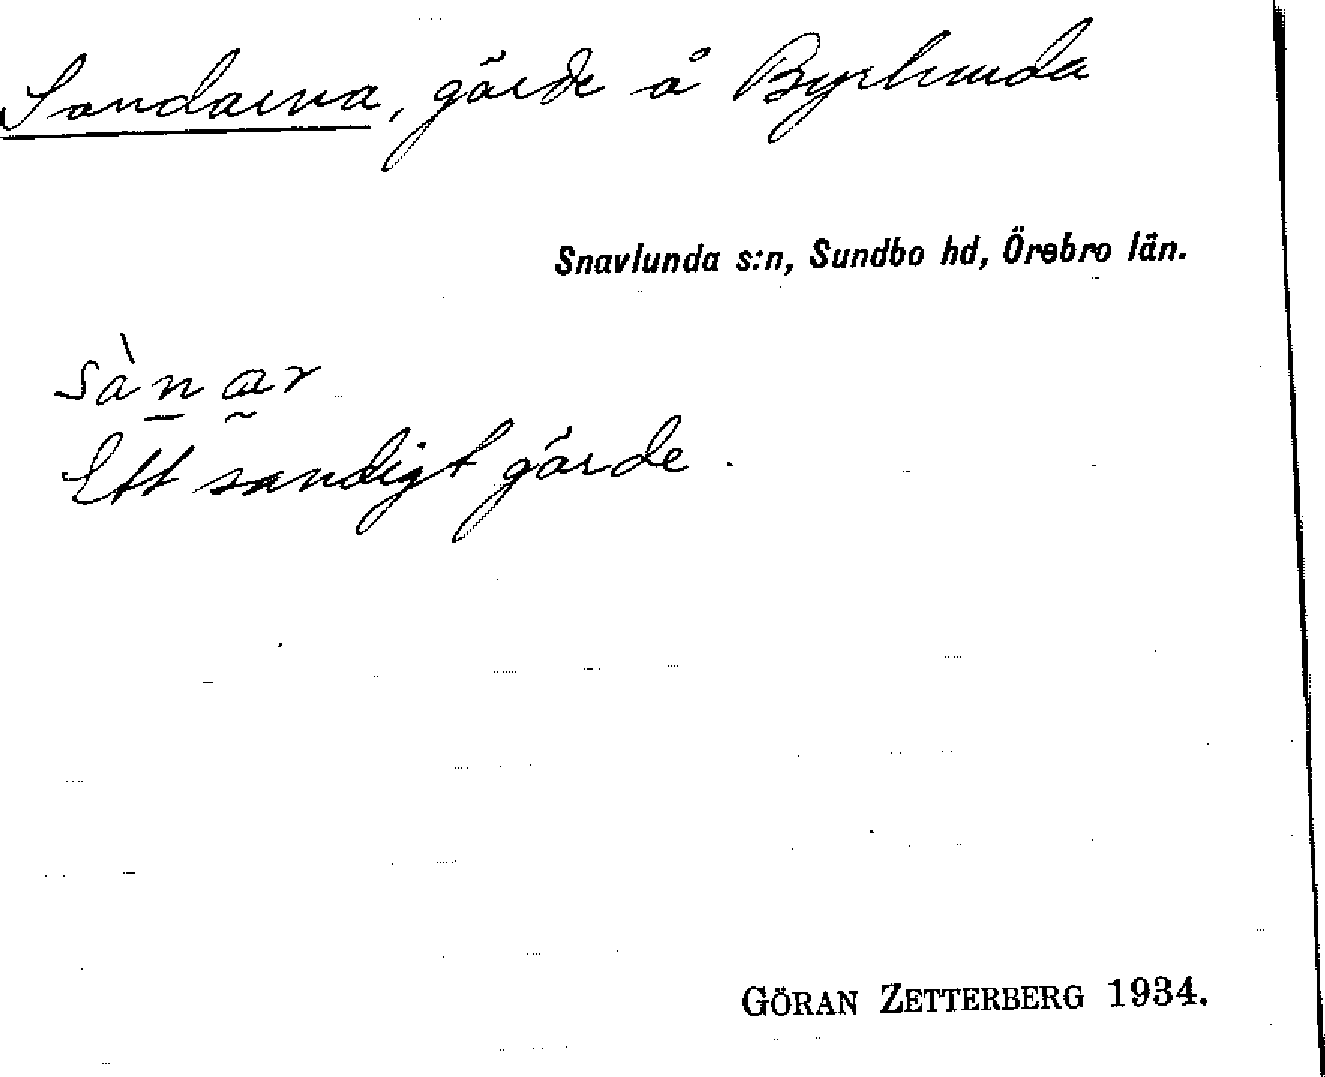 Sandarna, gärde å Byrlunda
Snavlunda s:n, Sundbo hd, Örebro län.
sànar
Ett sandigt gärde.
GÖRAN ZETTERBERG 1934.